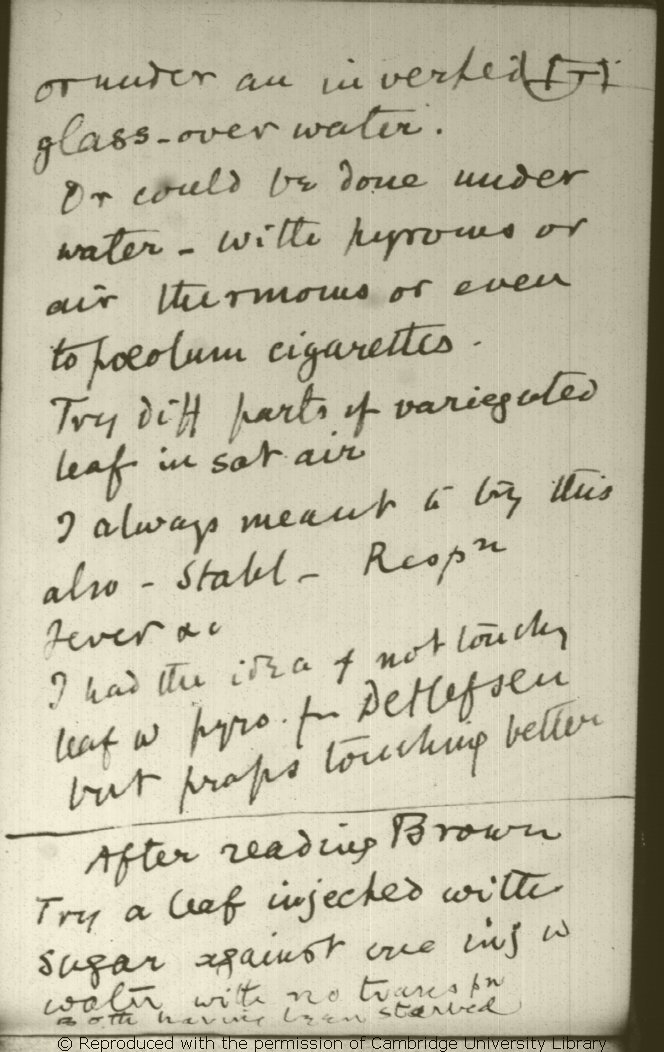 or under an inverted
glass - over water.
Or could be done under
water - with pyroms or
air thermoms or even
to pœolum cigarettes.
Try diff parts of variegated
leaf in sat air
I always meant to try this
also - Stahl - Respn
Fever &c
I had the idea of not touchg
leaf w pyro. fr Detlefsen
but praps touching better
After reading Brown
Try a leaf injected with
sugar against one inj w
water with no transpn
Both having been starved
© Reproduced with the permission of Cambridge University Library